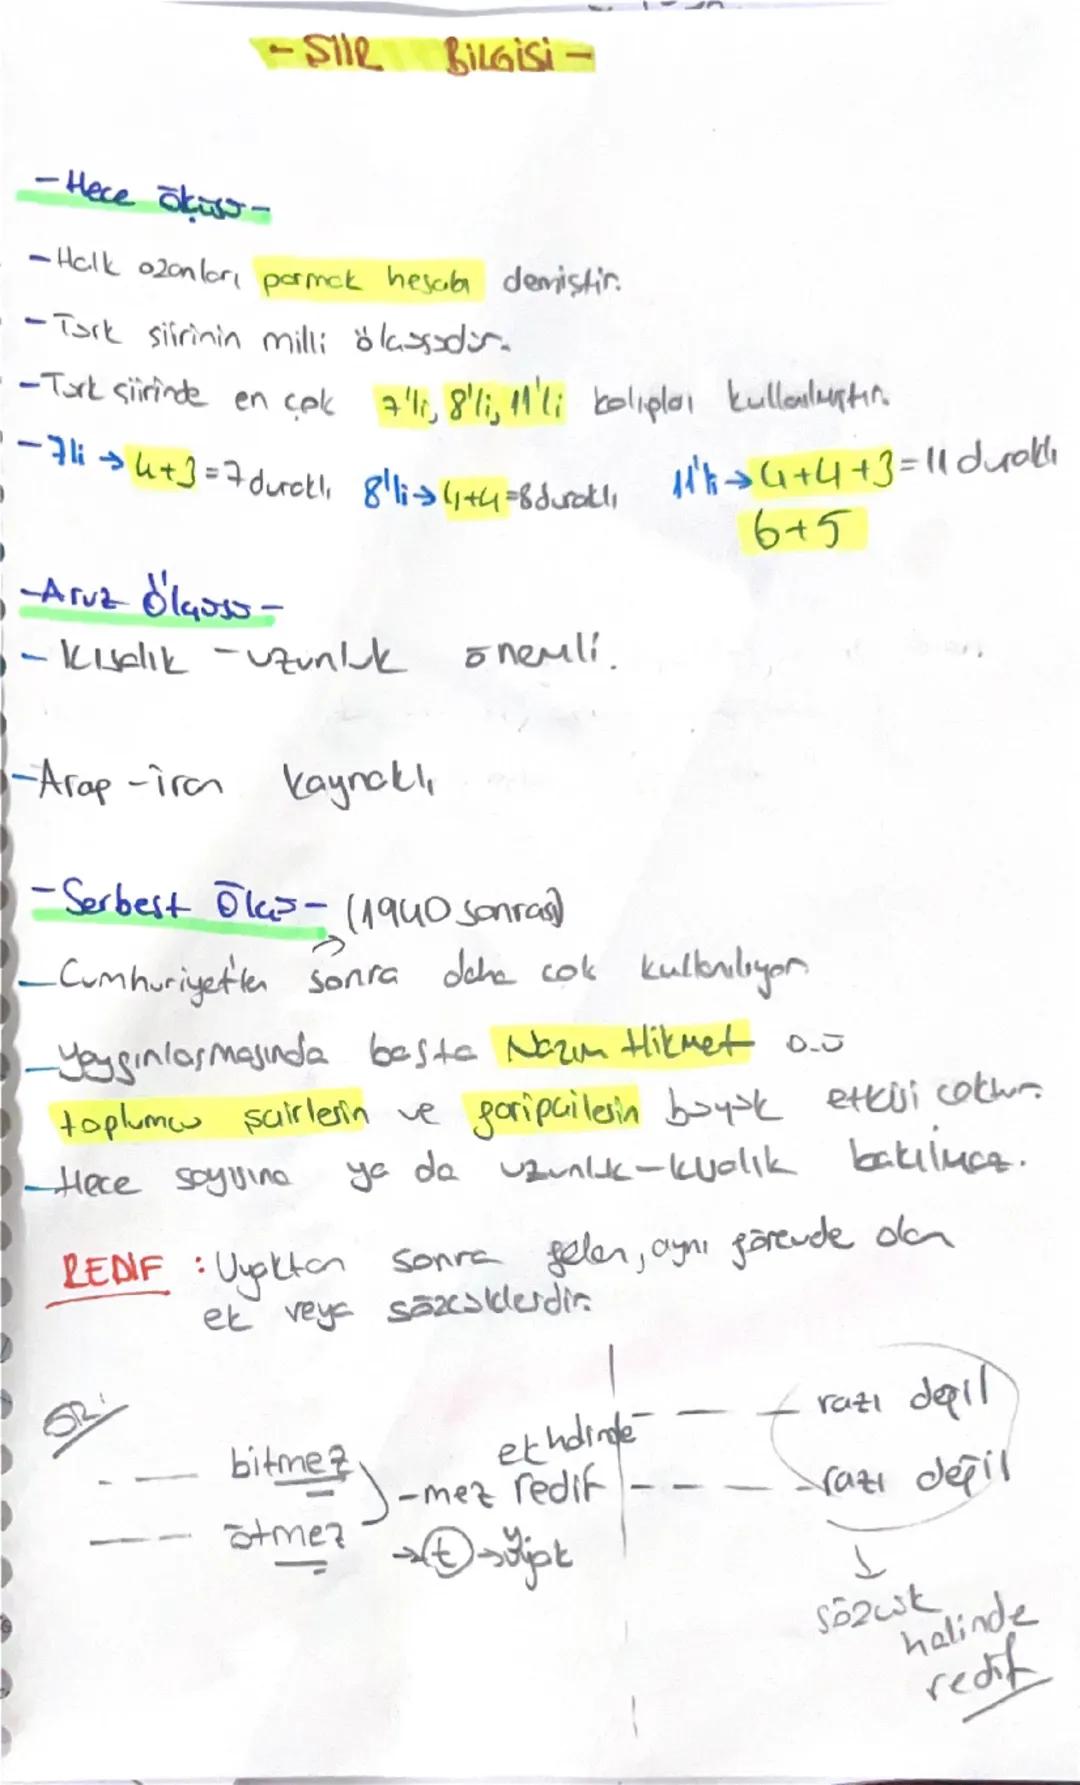 - ŞİİR BİLGİSİ -
- Hece Ölçüsü -
- Halk ozanları parmak hesabı demiştir.
- Türk şiirinin milli ölçüsüdür.
- Türk şiirinde en çok 7'li, 8'li, 11'li kalıpları kullanılmıştır.
- 7li → 4+3=7 duraklı 8'li → 4+4=8 duraklı 11'li → 4+4+3=11 duraklı
6+5
- Aruz Ölçüsü -
- Kısalık - uzunluk önemli.
- Arap - iran kaynaklı
- Serbest Ölçü - (1940 sonrası)
- Cumhuriyet'ten sonra daha çok kullanılıyor
- Yaygınlaşmasında başta Nazım Hikmet o.ü
toplumcu şairlerin ve garipçilerin büyük etkisi çoktur.
- Hece sayısına ya da uzunluk-kısalık bakılmaz.
REDİF : Uyaktan sonra gelen, aynı görevde olan
ek veya sözcüklerdir.
ÖR:
--- bitmez
--- ötmez
ek halinde
-mez redif
→ t → uyak
--- razı değil
--- razı değil
↓
sözcük
halinde
redif